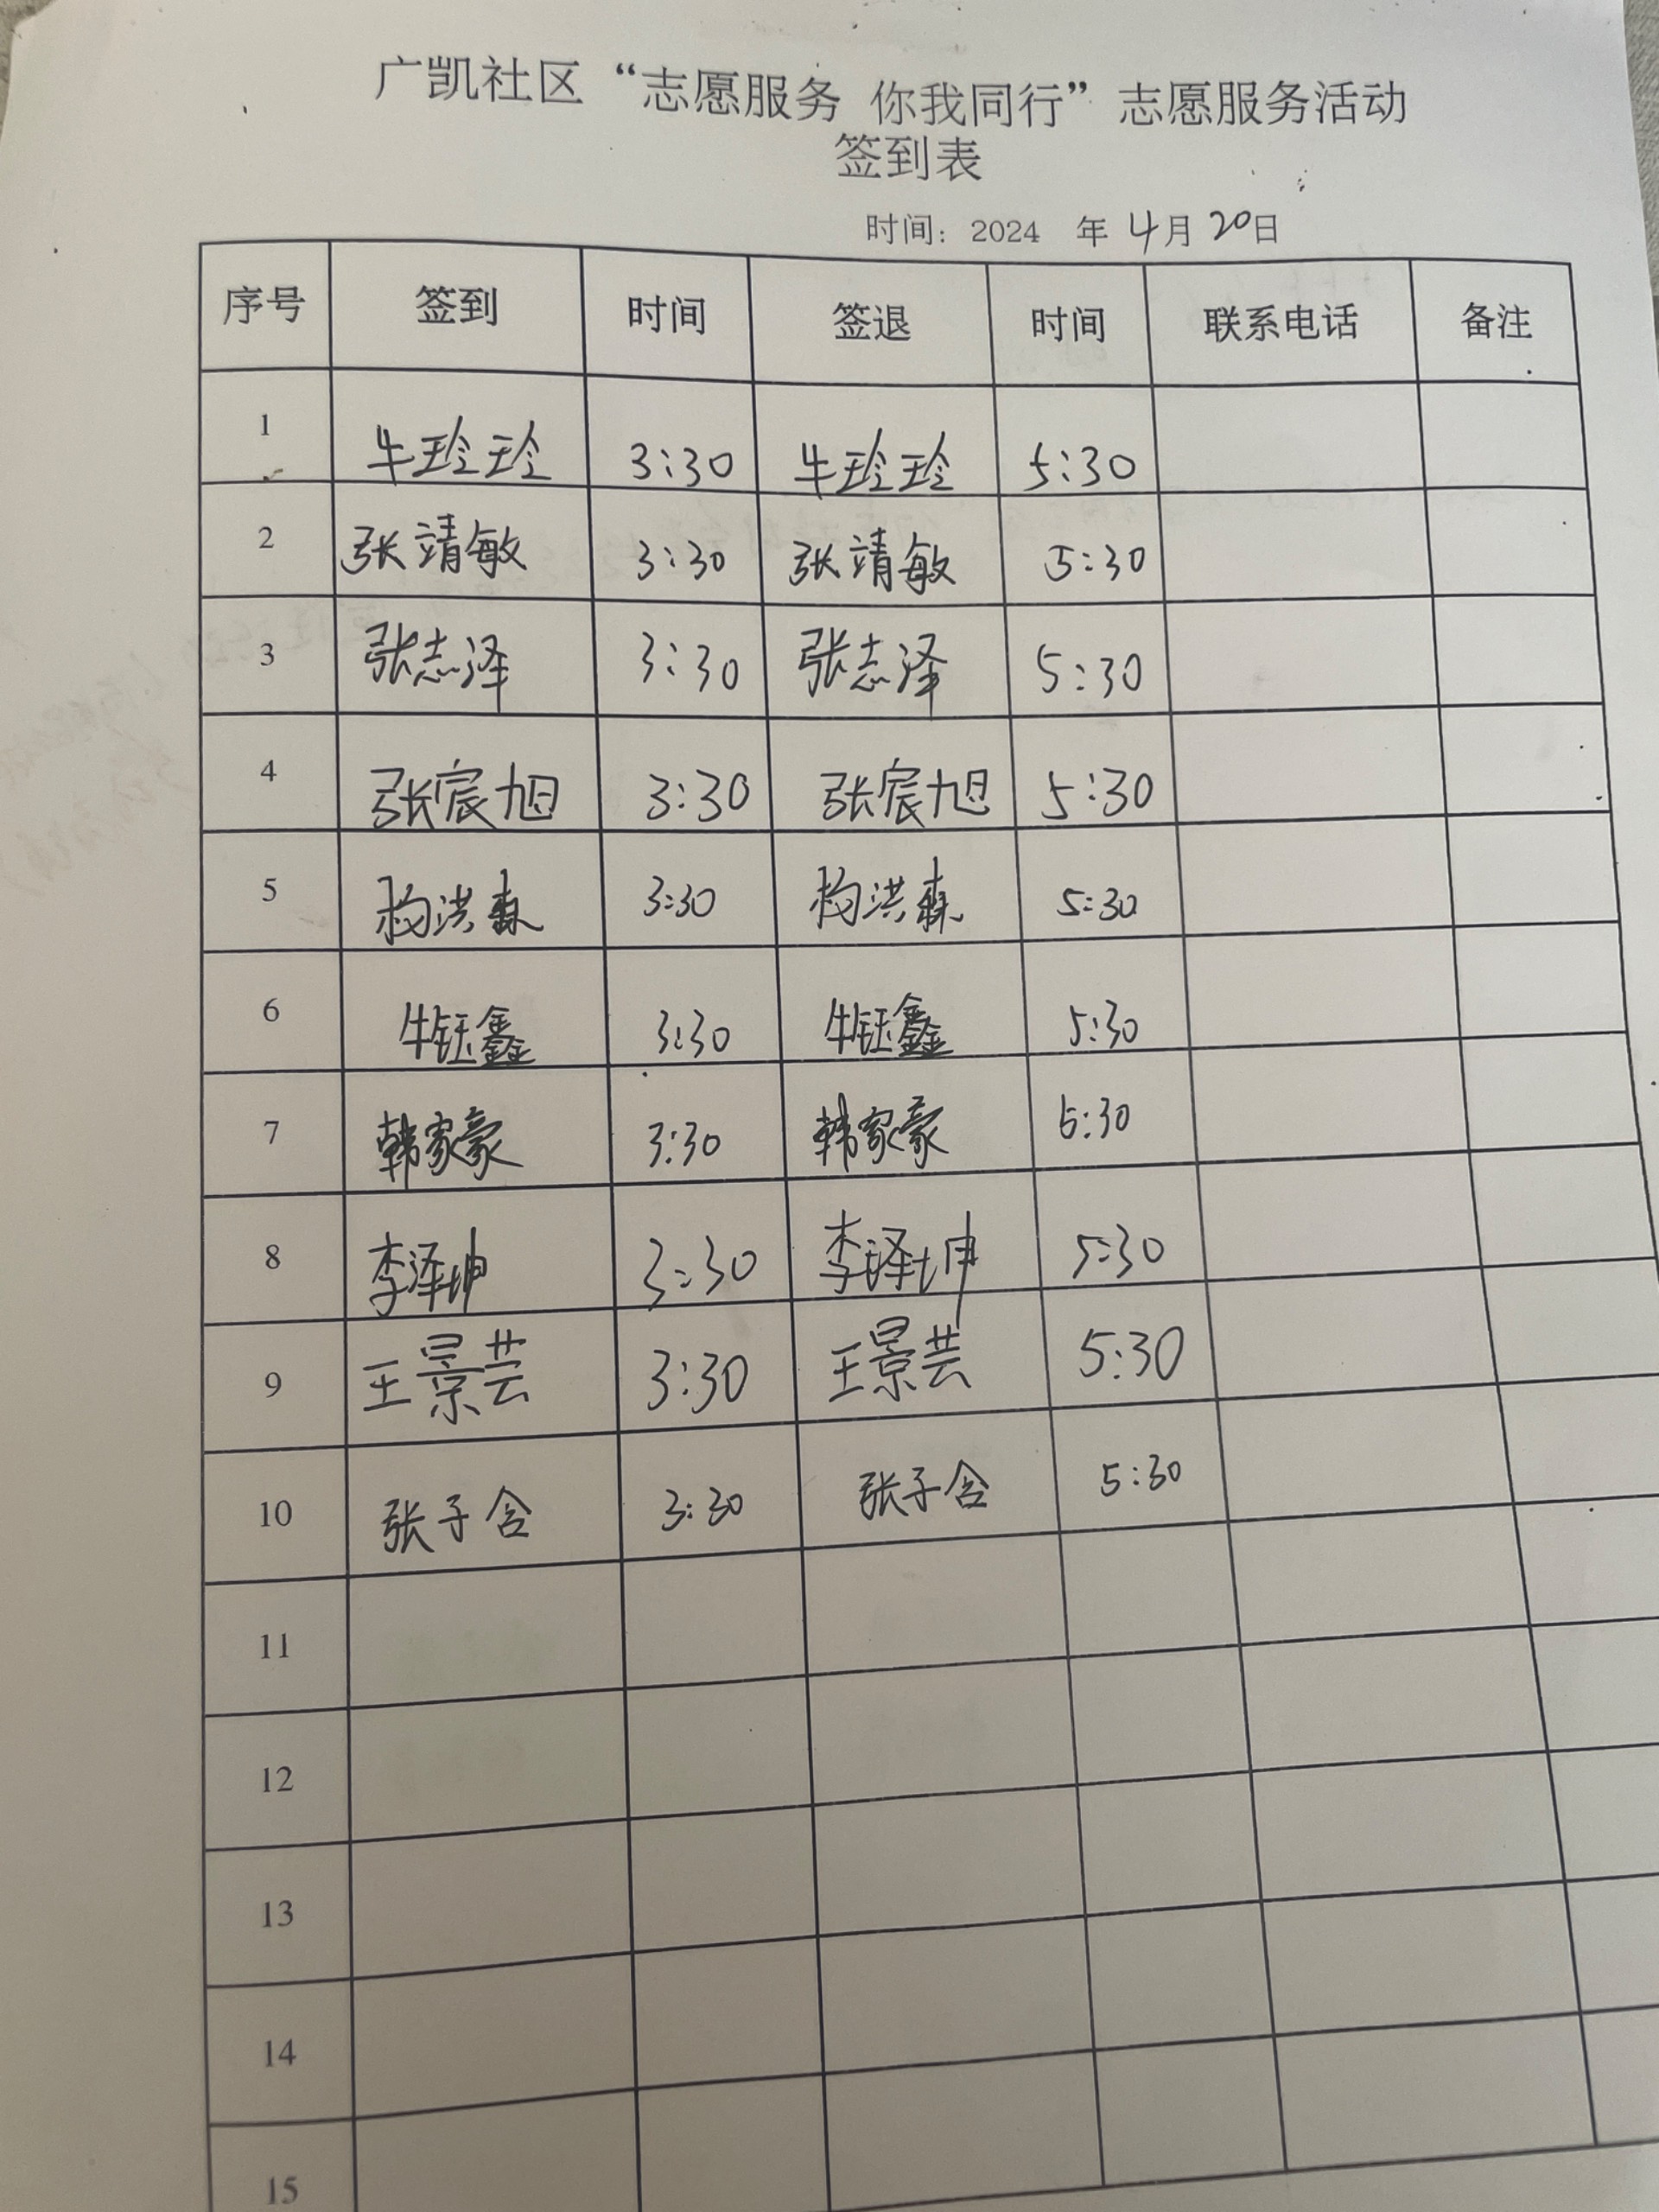 广凯社区“志愿服务 你我同行”志愿服务活动
签到表
时间：2024 年 4月 20日
序号 签到 时间 签退 时间 联系电话 备注
1 牛玲玲 3:30 牛玲玲 5:30
2 张靖敏 3:30 张靖敏 5:30
3 张志泽 3:30 张志泽 5:30
4 张宸旭 3:30 张宸旭 5:30
5 杨洪森 3:30 杨洪森 5:30
6 牛钰鑫 3:30 牛钰鑫 5:30
7 韩家豪 3:30 韩家豪 5:30
8 李泽坤 3:30 李泽坤 5:30
9 王景芸 3:30 王景芸 5:30
10 张子含 3:30 张子含 5:30
11
12
13
14
15